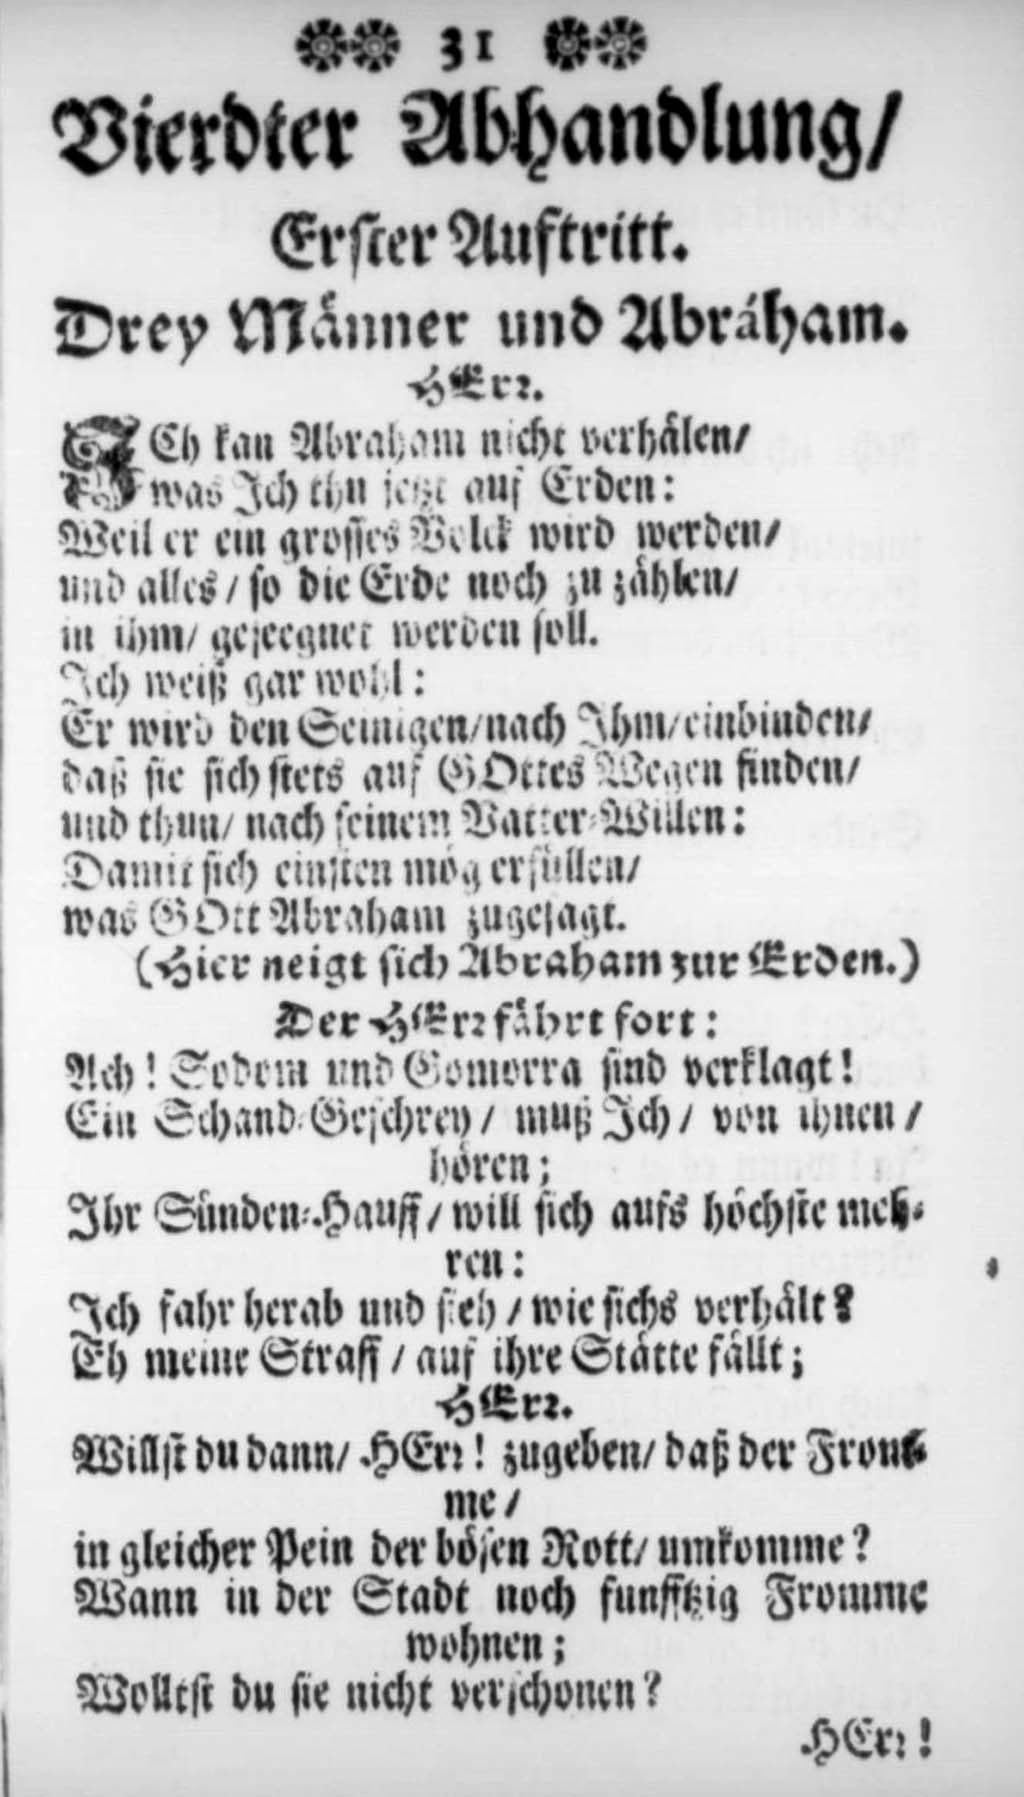 31
Vierdter Abhandlung/
Erster Auftritt.
Drey Männer und Abráham.
HErr.
ICh kan Abraham nicht verhälen/
was Ich thu jetzt auf Erden:
Weil er ein grosses Volck wird werden/
und alles/ so die Erde noch zu zählen/
in ihm/ geseegnet werden soll.
Ich weiß gar wohl:
Er wird den Seinigen/nach Ihm/einbinden/
daß sie sich stets auf GOttes Wegen finden/
und thun/ nach seinem Vatter-Willen:
Damit sich einsten mög erfüllen/
was GOtt Abraham zugesagt.
(Hier neigt sich Abraham zur Erden.)
Der HErr fährt fort:
Ach! Sodom und Gomorra sind verklagt!
Ein Schand-Geschrey/ muß Ich/ von ihnen/
hören;
Ihr Sünden-Hauff/ will sich aufs höchste meh-
ren:
Ich fahr herab und sieh/ wie sichs verhält?
Eh meine Straff/ auf ihre Stätte fällt;
HErr.
Willst du dann/ HErr! zugeben/ daß der From-
me/
in gleicher Pein der bösen Rott/ umkomme?
Wann in der Stadt noch funfftzig Fromme
wohnen;
Wolltst du sie nicht verschonen?
HErr!